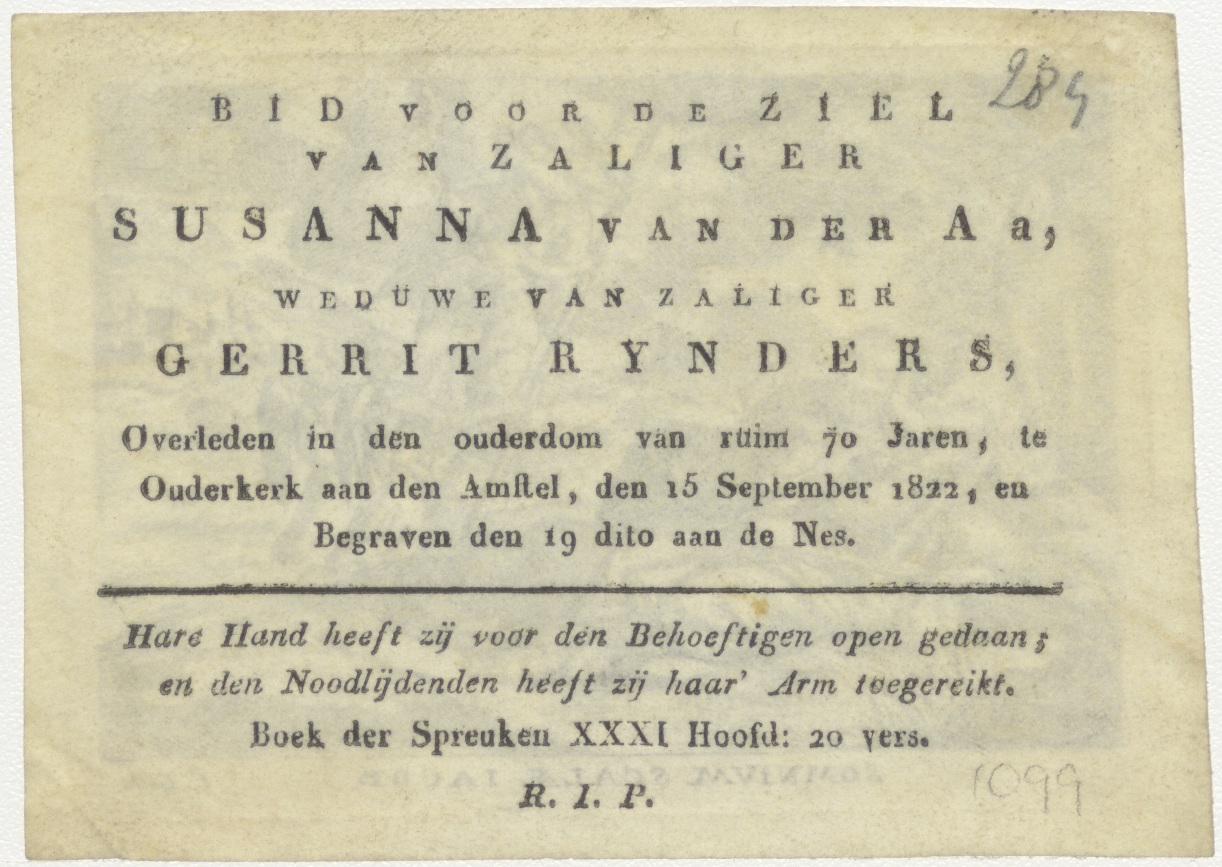 284
BID VOOR DE ZIEL
VAN ZALIGER
SUSANNA VAN DER Aa,
WEDUWE VAN ZALIGER
GERRIT RYNDERS,
Overleden in den ouderdom van ruim 70 Jaren, te
Ouderkerk aan den Amſtel, den 15 September 1822, en
Begraven den 19 dito aan de Nes.
Hare Hand heeft zij voor den Behoeftigen open gedaan;
en den Noodlijdenden heeft zij haar' Arm toegereikt.
Boek der Spreuken XXXI Hoofd: 20 vers.
R. I. P.
1099